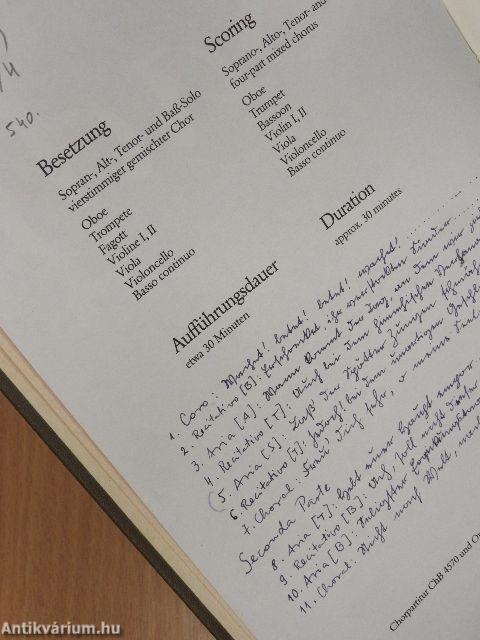 540.
Besetzung
Sopran-, Alt-, Tenor- und Baß-Solo
vierstimmiger gemischter Chor
Oboe
Trompete
Fagott
Violine I, II
Viola
Violoncello
Basso continuo
Aufführungsdauer
etwa 30 Minuten
Scoring
Soprano-, Alto-, Tenor- and
four-part mixed chorus
Oboe
Trumpet
Bassoon
Violin I, II
Viola
Violoncello
Basso continuo
Duration
approx. 30 minutes
1. Coro: Wachet! betet! betet! wachet!
2. Recitativo [B]:
3. Aria [A]: Wenn kömmt der Tag, an dem wir
4. Recitativo [T]: Auch bei dem himmlischen Verlangen
5. Aria [S]: Laßt der Spötter Zungen schmähen
6. Recitativo [T]: Jedoch! bei dem
7. Choral: Freu dich sehr, o meine Seele
Seconda Parte
8. Aria [T]: Hebt euer Haupt empor
9. Recitativo [B]: Ach, soll nicht dieser
10. Aria [B]: Seligster Erquickungs
11. Choral: Nicht nach Welt, nach
Chorpartitur ChB 4570 und
Antikvárium.hu